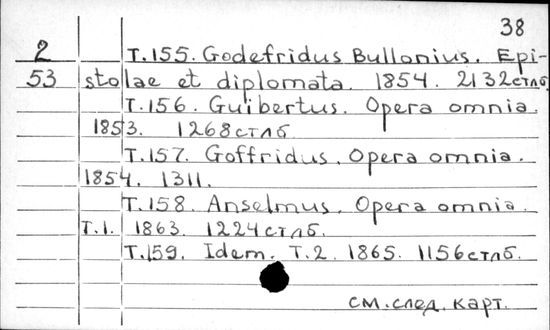 38
2 Т.155. Godefridus Bullonius. Epi-
53 stolae et diplomata. 1854. 2132стлб.
Т.156. Guibertus. Opera omnia.
1853. 1268стлб.
Т.157. Goffridus. Opera omnia.
1854. 1311.
Т.158. Anselmus. Opera omnia.
Т.1. 1863. 1224стлб.
Т.159. Idem. Т.2. 1865. 1156стлб.
см.след. карт.